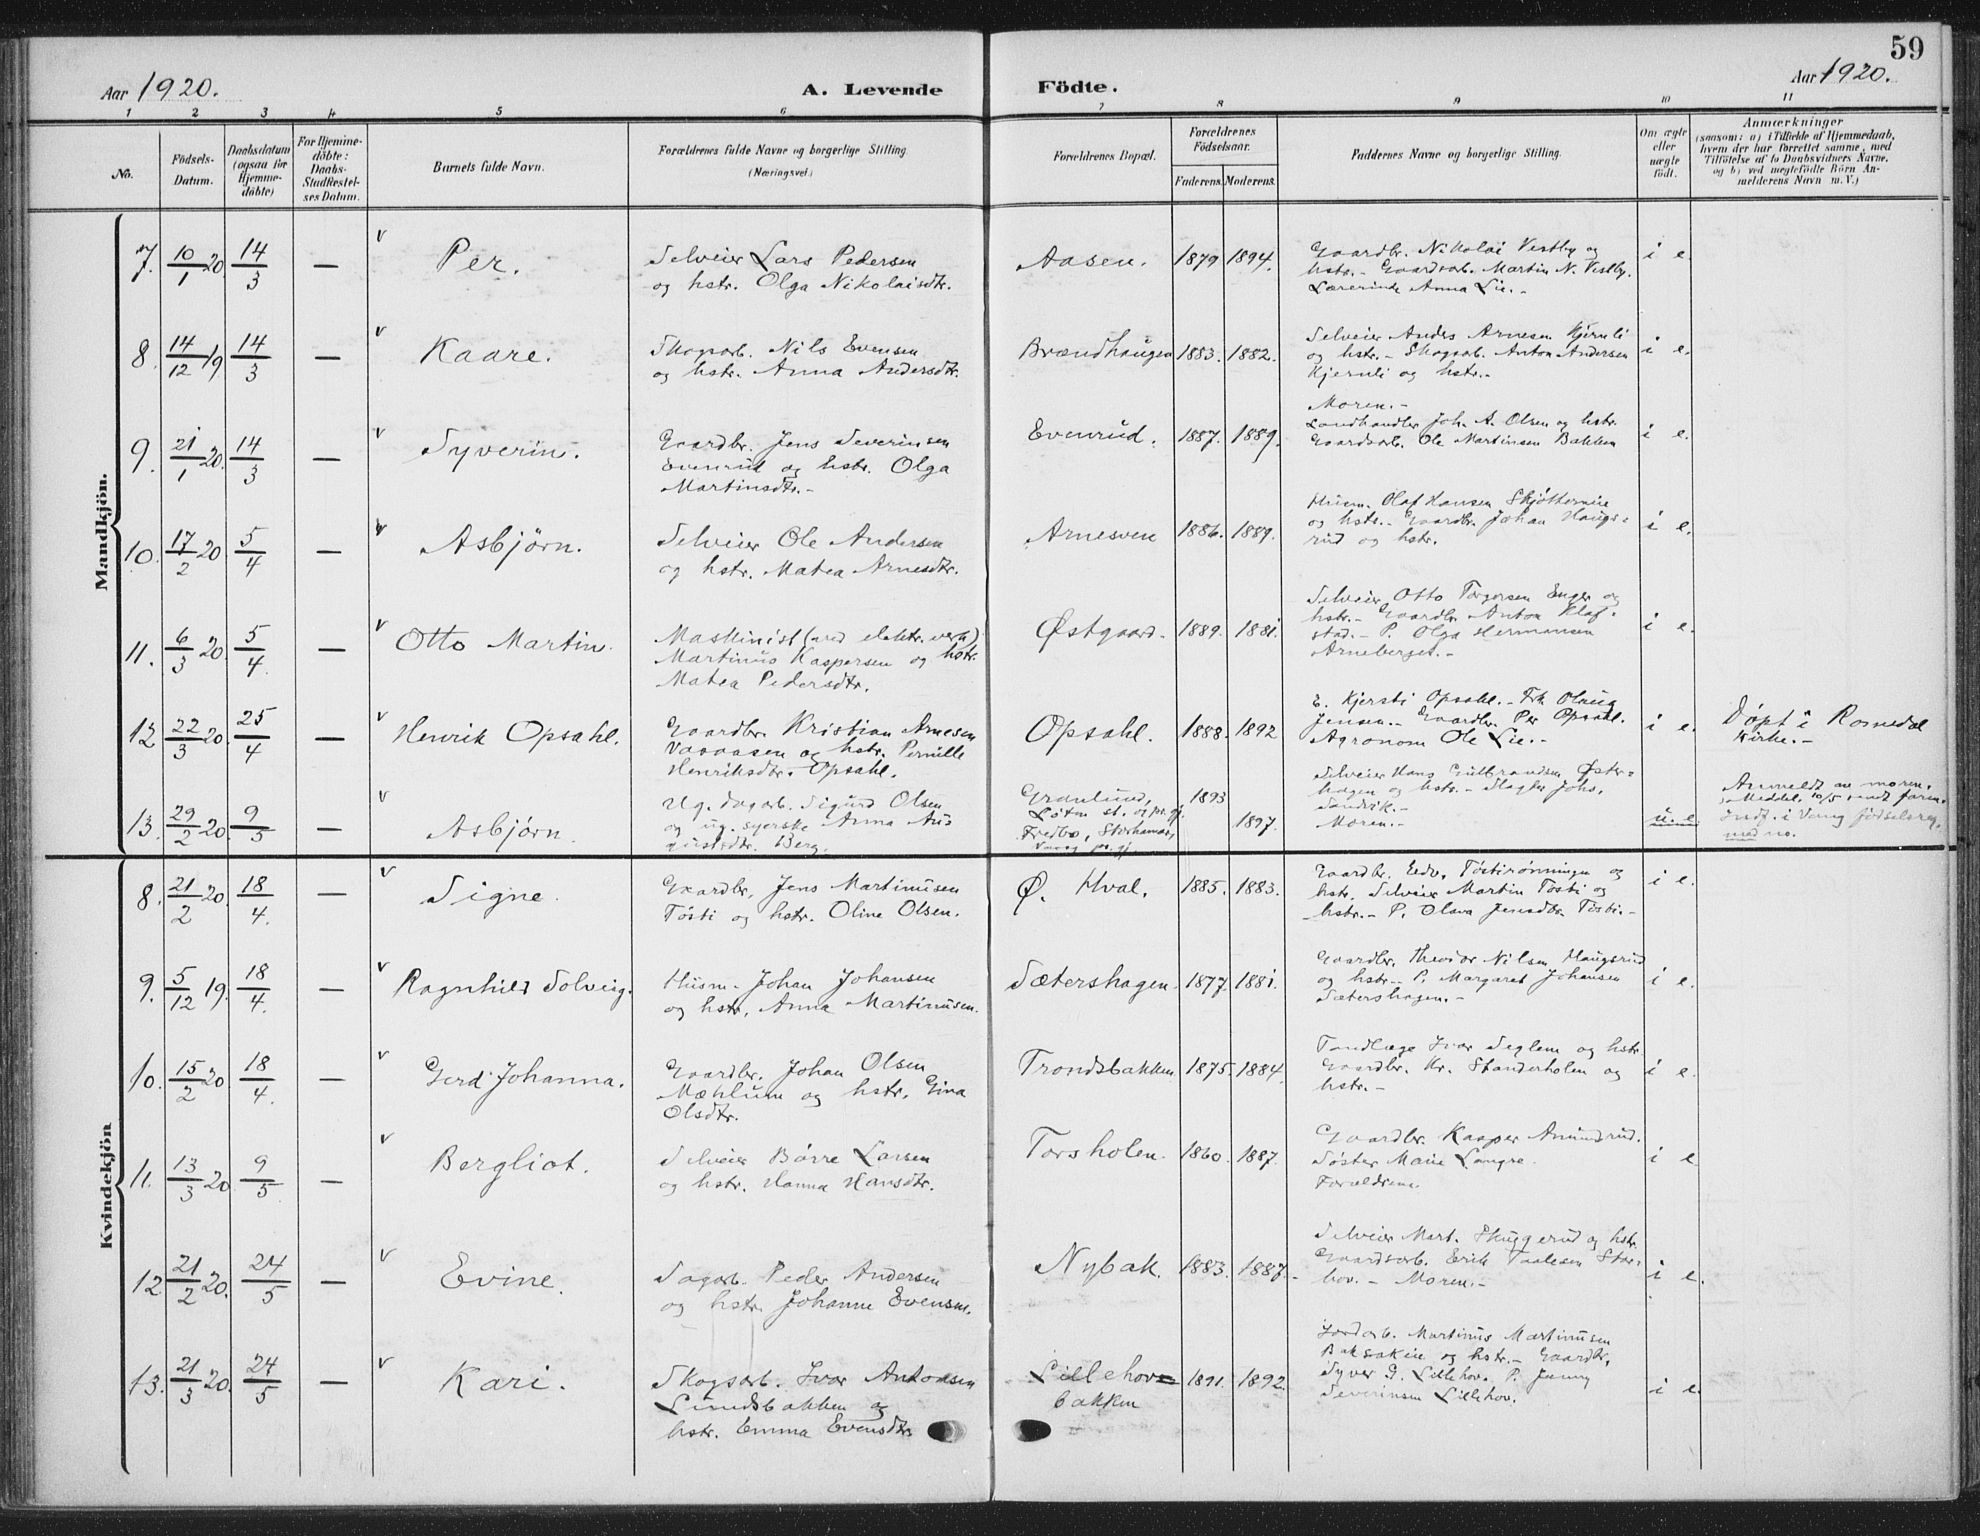 59
Aar 1920.
A. Levende
Födte.
Aar 1920.
1 2 3 4 5 6 7 8 9 10 11
No.
Födsels-
Datum.
Daabsdatum
(ogsaa for
Hjemme-
döbte)
For Hjemme-
döbte:
Daabs-
Stadfæstel-
ses Datum.
Barnets fulde Navn.
Forældrenes fulde Navne og borgerlige Stilling
(Næringsvei.)
Forældrenes Bopæl.
Forældrenes
Födselsaar.
Faderens. Moderens.
Faddernes Navne og borgerlige Stilling.
Om ægte
eller
uægte
födt.
Anmærkninger
(saasom: a) i Tilfælde af Hjemmedaab,
hvem der har forrettet samme, med
Tilföielse af to Daabsvidners Navne,
og b) ved uægtefödte Börn An-
melderens Navn m. V.)
Mandkjön.
7. 10/1 20 14/3 — Per.
Selveier Lars Pedersen
og hstr. Olga Nikolaisdtr.
Aasen. 1879 1894.
Gaardbr. Nikolai Vestby og
hstr. - Gaardsarb. Martin N. Vestby.
Lærerinde Anna Lie. -
i e.
8. 14/12 19 14/3 — Kaare.
Skogsarb. Nils Evensen
og hstr. Anna Andersdtr.
Brændhaugen 1883. 1882.
Selveier Anders Arnesen Kjernli
og hstr. - Skogsarb. Anton Andersen
Kjernli og hstr. -
i e.
9. 21/1 20. 14/3 — Syverin.
Gaardbr. Jens Severinsen
Evenrud og hstr. Olga
Martinsdtr. -
Evenrud. 1887. 1889.
Moren. -
Landhandler Joh. A. Olsen og hstr.
Gaardsarb. Ole Martinsen Bakken
i e.
10. 17/2 20 5/4 — Asbjörn.
Selveier Ole Andersen
og hstr. Matea Arnesdtr.
Arnesven 1886. 1889.
Husm. Olaf Hansen
og hstr. - Gaardbr. Johan Haugs-
rud og hstr.
i e.
11. 6/3 20. 5/4 — Otto Martin.
Maskinist (ved elektr. verk)
Martinus Kaspersen og hstr.
Matea Pedersdtr.
Østgaard. 1889. 1881.
Selveier Otto Torgersen Enger og
hstr. - Gaardbr. Anton Klaf-
stad. - P. Olga Hermansen
Arneberget. -
i e.
12 22/3 20. 25/4 — Henrik Opsahl.
Gaardbr. Kristian Arnesen
Vasaasen og hstr. Pernille
Henriksdtr. Opsahl.
Opsahl. 1888. 1892
E. Kjersti Opsahl. - Frk. Olaug
Jensen. - Gaardbr. Per Opsahl.
Agronom Ole Lie. -
i e.
Döpt i Romedal
Kirke. -
13. 29/2 20. 9/5 — Asbjörn
Ug. dagarb. Sigurd Olsen
og ug. syerske Anna Au-
gustsdtr. Berg.
Granlund,
Løten st. og pr. gj.
Fredbo, Storhamar,
Vang pr. gj.
1893
1897.
Selveier Hans Gulbrandsen Øster-
hagen og hstr. - Slagter Johs.
Sandvik. -
Moren. -
u. e.
Anmeldt av moren.
Meddel. 10/5
indf. i Vang födselsreg.
med no.
Kvindekjön
8. 21/2 20. 18/4. — Signe.
Gaardbr. Jens Martinusen
Tösti og hstr. Oline Olsen.
Ø. Hval. 1885. 1883.
Gaardbr. Edv. Töstirönningen og
hstr. Selveier Martin Tösti og
hstr. - P. Olava Jensdtr. Tösti. -
i e.
9. 5/12 19. 18/4. — Ragnhild Solveig.
Husm. Johan Johansen
og hstr. Anna Martinusen.
Sætershagen. 1877. 1881.
Gaardbr. Theodor Nilsen Haugsrud
og hstr. - P. Margaret Johansen
Sætershagen. -
i e.
10. 15/2 20 18/4. — Gerd Johanna.
Gaardbr. Johan Olsen
Mæhlum og hstr. Gina
Olsdtr.
Trondsbakken. 1875. 1884.
Tandlæge Ivar Seglem og hstr.
Gaardbr. Kr. Standerholen og
hstr. -
i e.
11. 13/3 20 9/5. — Bergliot.
Selveier Börre Larsen
og hstr. Hanna Hansdtr.
Torsholen. 1860. 1887.
Gaardbr. Kasper Amundrud.
Söster Marie Langre.
Forældrene.
i e.
12 21/2 20. 24/5 — Evine.
Dagarb. Peder Andersen
og hstr. Johanne Evensen.
Nybak. 1883. 1887. -
Selveier Mart. Skuggerud og hstr.
Gaardsarb. Erik Paalesen Stor-
hov. - Moren. -
i e.
13. 21/3 20. 24/5 — Kari.
Skogsarb. Ivar Antonsen
Lundsbakken og
hstr. Emma Evensdtr.
Lillehov-
bakken
1891. 1892.
Jordarb. Martinus Martinusen
Baksakeie og hstr. - Gaardbr.
Syver G. Lillehov. P. Jenny
Severinsen Lillehov.
i e.